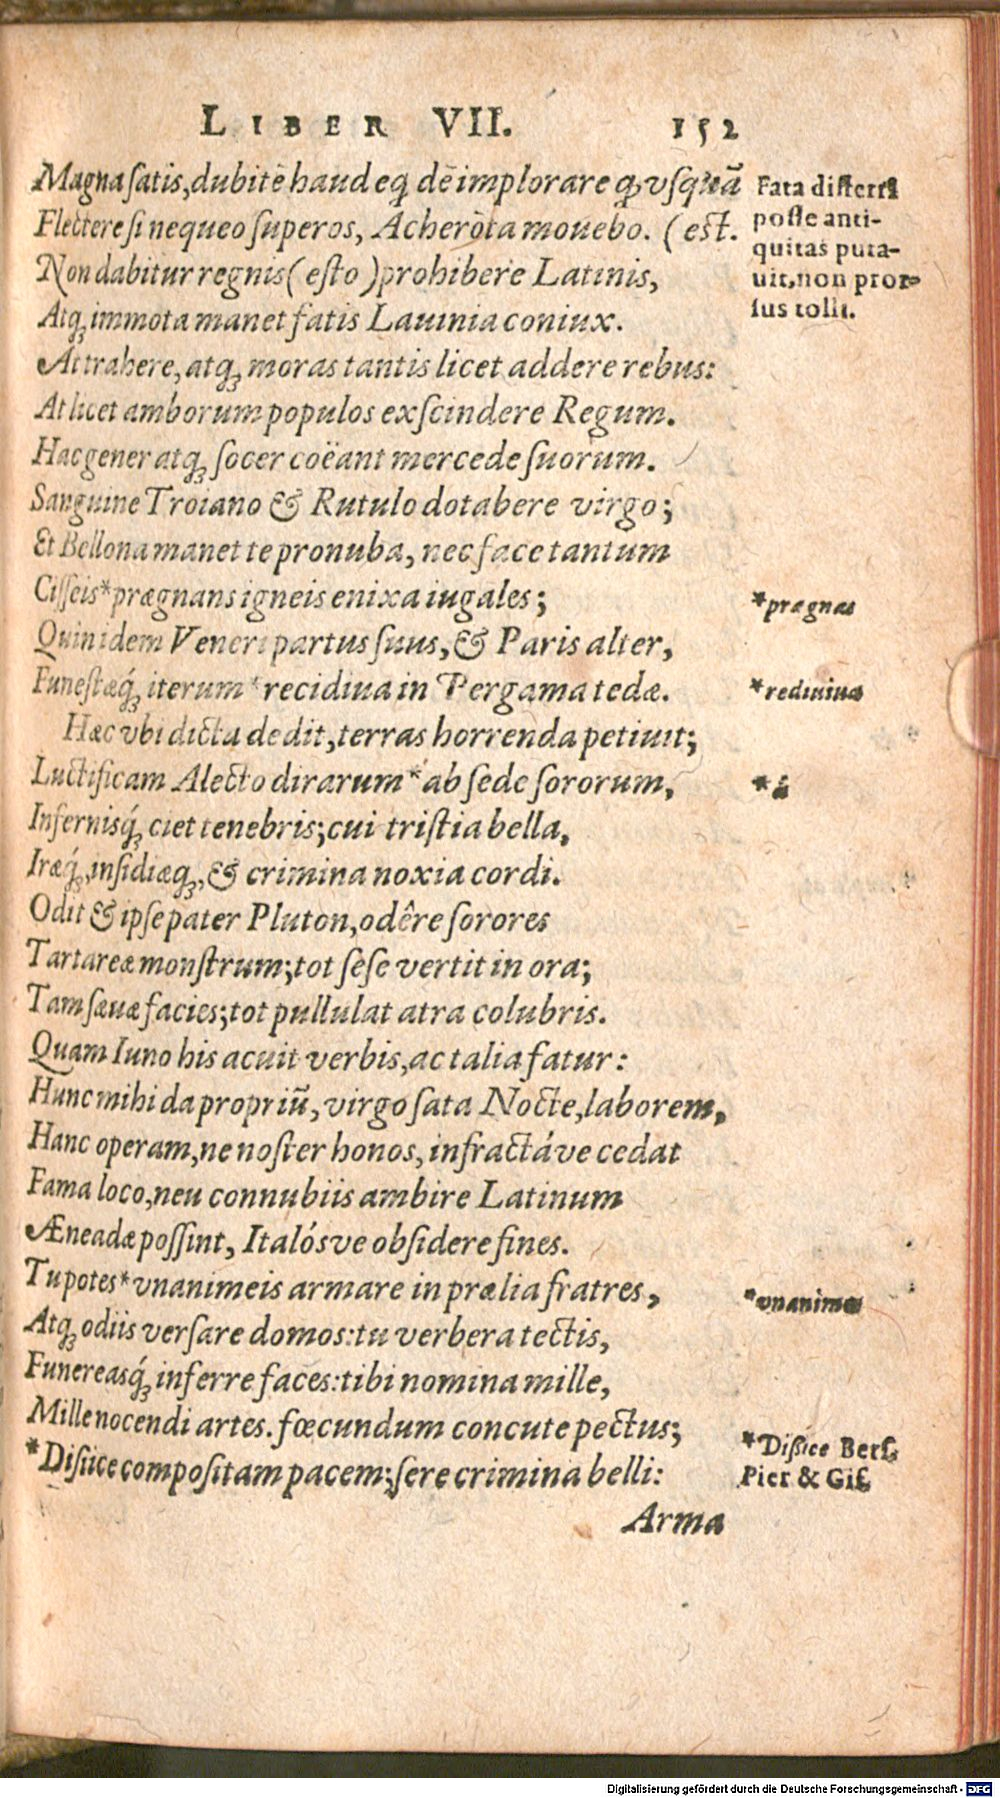 LIBER VII. 152
Magna satis, dubitē haud eq́ dē implorare ꝙ vsquā
Flectere si nequeo superos, Acherōta mouebo. (est.
Non dabitur regnis (esto) prohibere Latinis,
Atq; immota manet fatis Lauinia coniux.
At trahere, atq; moras tantis licet addere rebus:
At licet amborum populos exscindere Regum.
Hac gener atq; socer coëant mercede suorum.
Sanguine Troiano & Rutulo dotabere virgo;
Et Bellona manet te pronuba, nec face tantum
Cisseis*prægnans igneis enixa iugales;
Quin idem Veneri partus suus, & Paris alter,
Funestæq́; iterum*recidiua in Pergama tedæ.
Hæc vbi dicta dedit, terras horrenda petiuit;
Luctificam Alecto dirarum*ab sede sororum,
Infernisq́; ciet tenebris; cui tristia bella,
Iræq́;, insidiæq;, & crimina noxia cordi.
Odit & ipse pater Pluton, odêre sorores
Tartareæ monstrum; tot sese vertit in ora;
Tam sæuæ facies; tot pullulat atra colubris.
Quam Iuno his acuit verbis, ac talia fatur:
Hunc mihi da propriū, virgo sata Nocte, laborem,
Hanc operam, ne noster honos, infractáve cedat
Fama loco, neu connubiis ambire Latinum
Æneadæ possint, Italósve obsidere fines.
Tu potes*vnanimeis armare in prælia fratres,
Atq; odiis versare domos: tu verbera tectis,
Funereasq́; inferre faces: tibi nomina mille,
Mille nocendi artes. fœcundum concute pectus;
*Disiice compositam pacem; sere crimina belli:
Arma
Fata differri
posse anti-
quitas puta-
uit, non pror-
sus tolli.
*prægnas
*rediuiua
*à
*vnanimes
*Dißice Bers.
Pier & Gis.
Digitalisierung gefördert durch die Deutsche Forschungsgemeinschaft - DFG